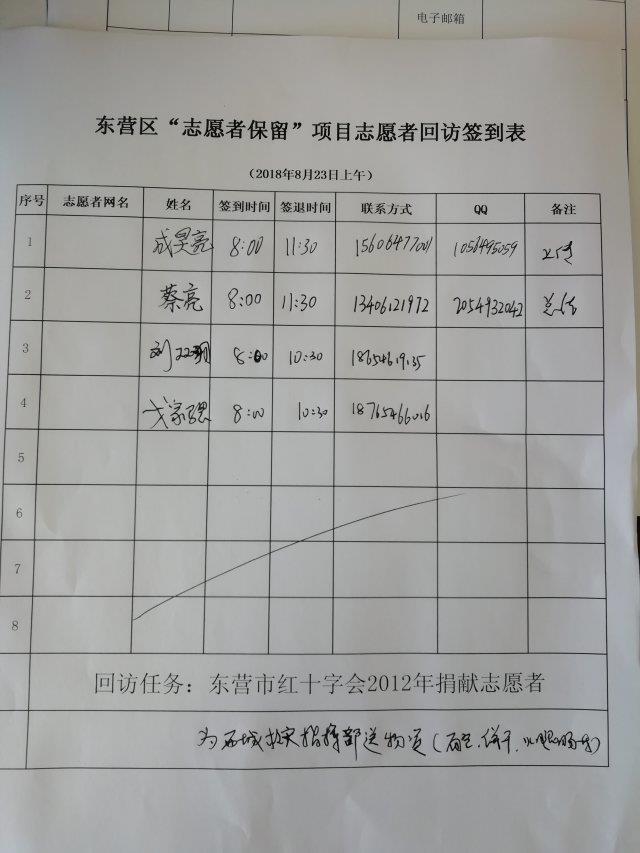 电子邮箱
东营区“志愿者保留”项目志愿者回访签到表
（2018年8月23日上午）
序号 志愿者网名 姓名 签到时间 签退时间 联系方式 QQ 备注
1 成昊亮 8:00 11:30 1056495059
2 蔡亮 8:00 11:30 13406121972 2054932042 总结
3 8:00 10:30
4 8:00 10:30 18765466016
5
6
7
8
回访任务：东营市红十字会2012年捐献志愿者
指挥部送物资（